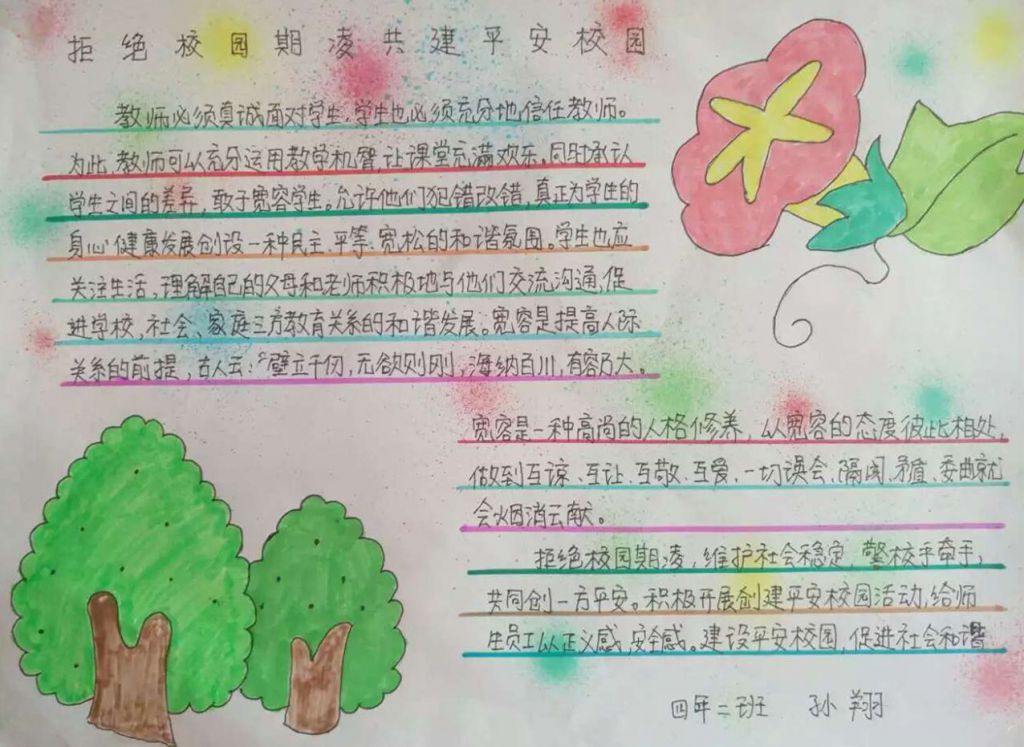 拒绝校园期凌共建平安校园
教师必须真诚面对学生,学生也必须充分地信任教师。
为此,教师可以充分运用教学机智,让课堂充满欢乐。同时承认
学生之间的差异,敢于宽容学生。允许他们犯错改错,真正为学生的
身心健康发展创设一种民主、平等、宽松的和谐氛围。学生也应
关注生活,理解自己的父母和老师积极地与他们交流沟通,促
进学校,社会、家庭三方教育关系的和谐发展。宽容是提高人际
关系的前提,古人云:“壁立千仞,无欲则刚,海纳百川,有容乃大。
宽容是一种高尚的人格修养,以宽容的态度彼此相处,
做到互谅、互让、互敬、互爱、一切误会、隔阂、矛盾、委曲就
会烟消云献。
拒绝校园期凌,维护社会稳定,警校手牵手,
共同创一方平安。积极开展创建平安校园活动,给师
生员工以正义感,安全感。建设平安校园,促进社会和谐
四年二班 孙翔